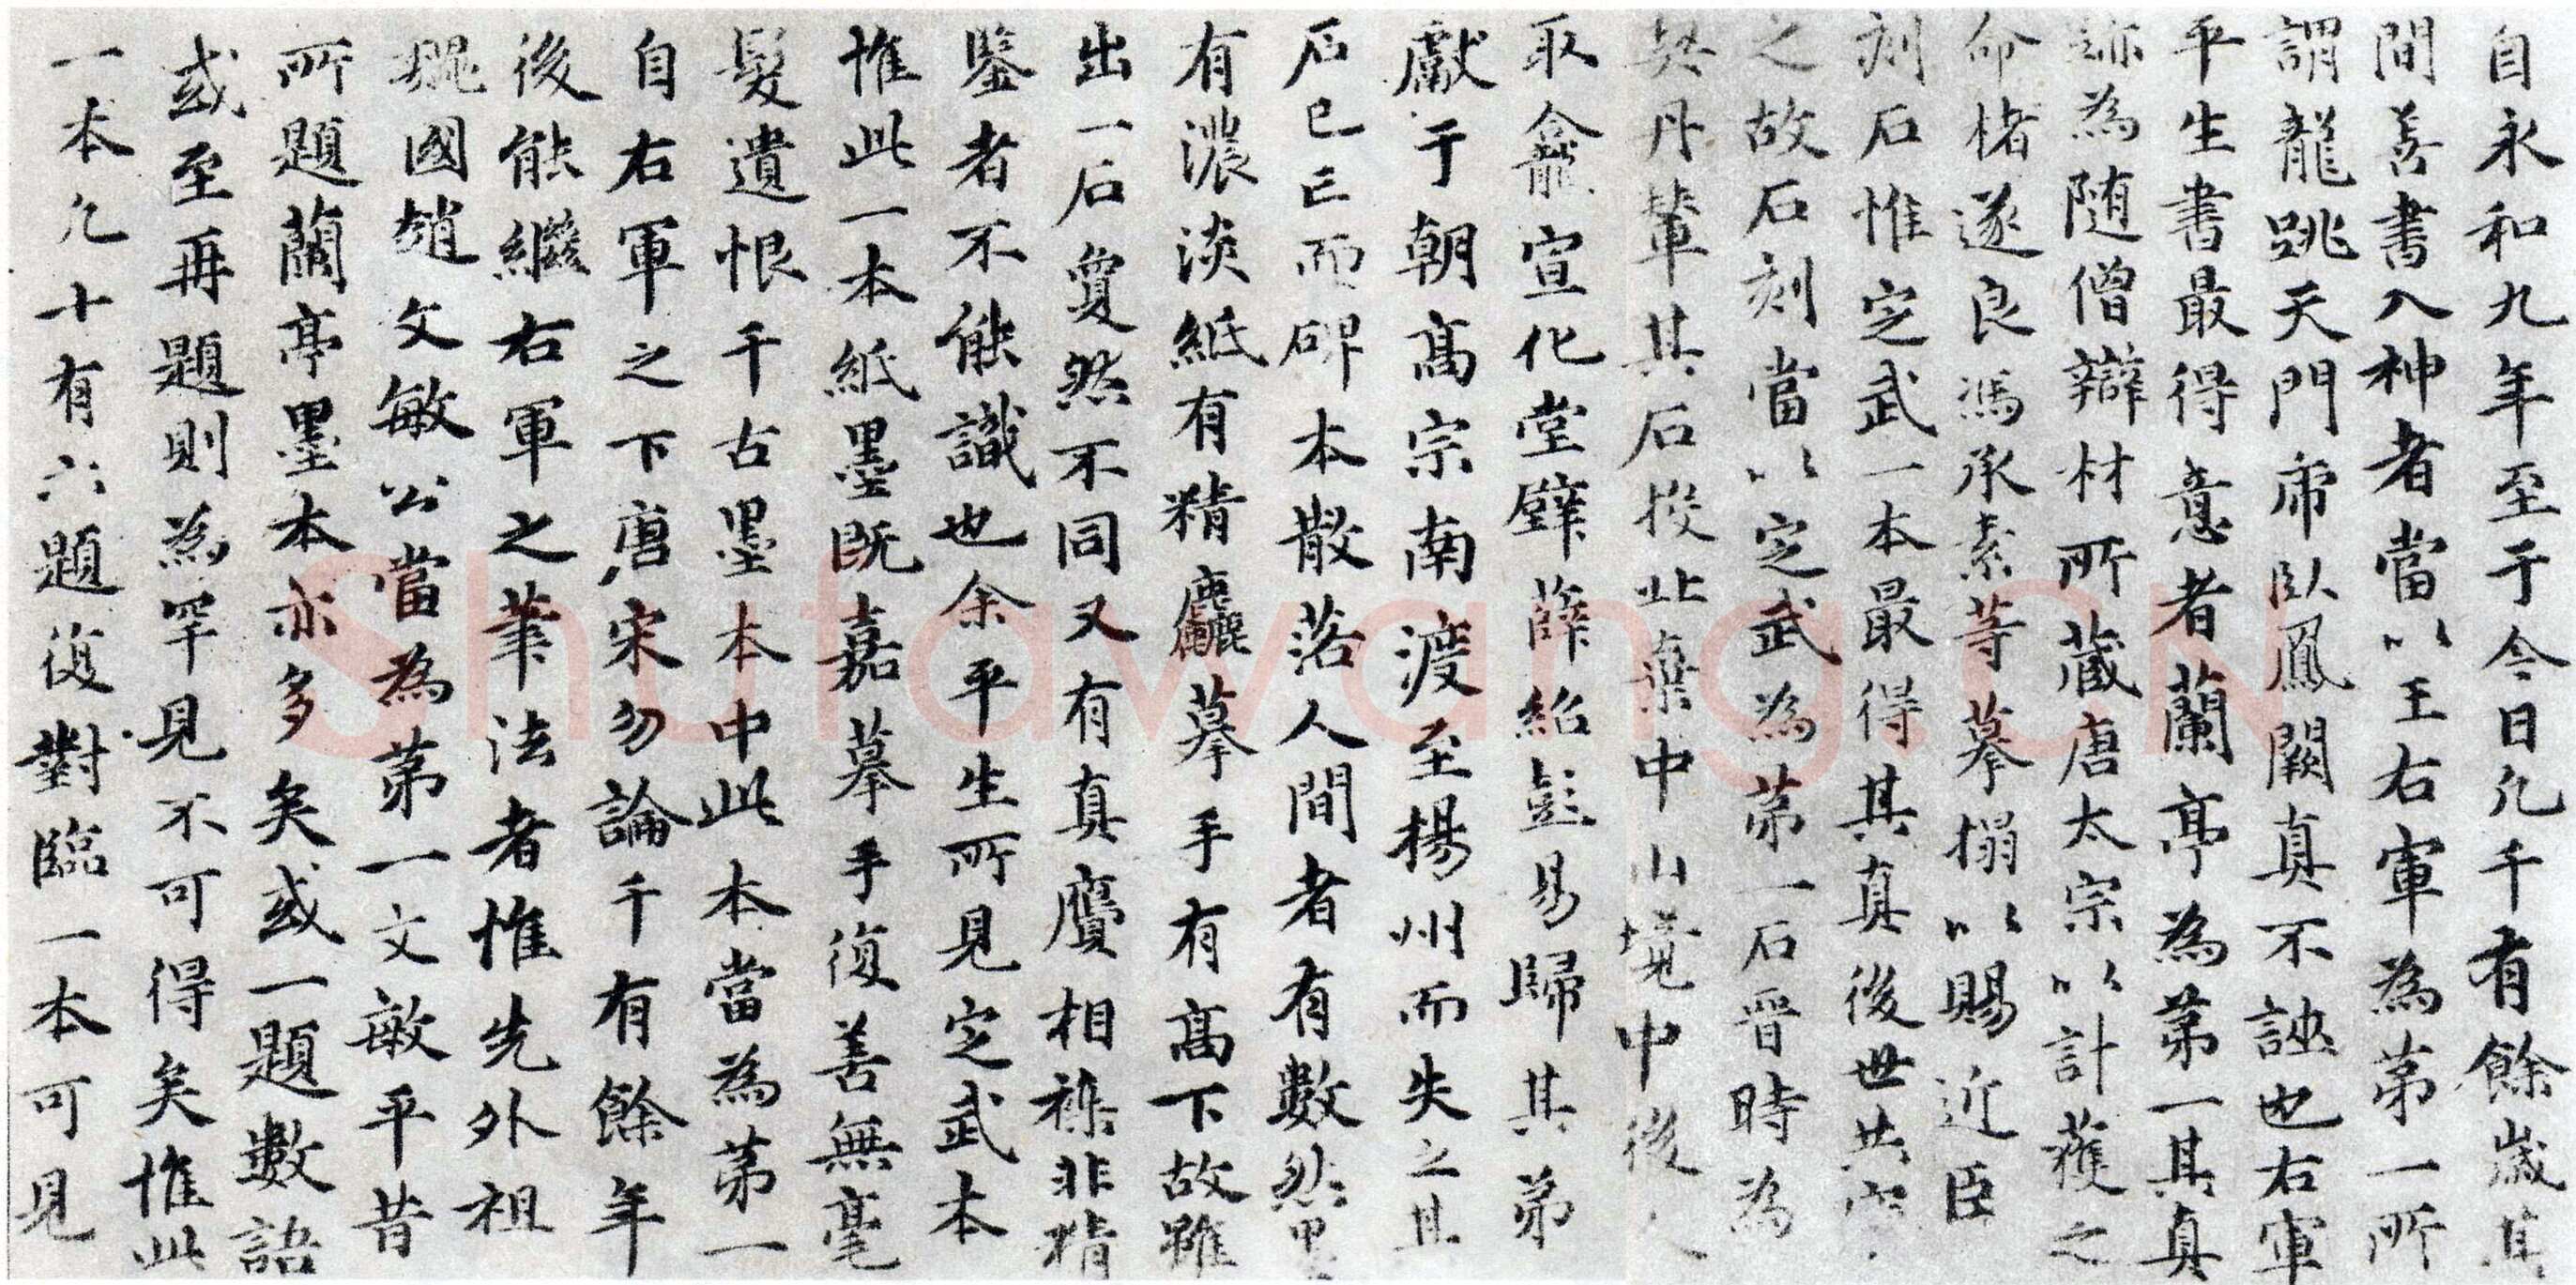 自永和九年至于今日凡千有餘歲其
間善書入神者當以王右軍為第一所
謂龍跳天門虎臥鳳闕真不誣也右軍
平生書最得意者蘭亭為第一其真
跡為隨僧辯材所藏唐太宗以計獲之
命楮遂良馮承素等摹搨以賜近臣
刻石惟定武一本最得其真後世共
之故石刻當以定武為第一石晋時為
契丹輦其石投北棄中山境中後人
取龕宣化堂壁薛紹彭易歸其弟
獻于朝高宗南渡至揚州而失之其
石已亡而碑本散落人間者有數然墨
有濃淡紙有精麤摹手有高下故雖
出一石夐然不同又有真贋相襍非精
鑒者不能識也余平生所見定武本
惟此一本紙墨既嘉摹手復善無毫
髮遺恨千古墨本中此本當為第一
自右軍之下唐宋勿論千有餘年
後能繼右軍之筆法者惟先外祖
魏國趙文敏公當為第一文敏平昔
所題蘭亭墨本亦多矣或一題數語
或至再題則為罕見不可得矣惟此
一本凡十有六題復對臨一本可見
Shufawang.CN